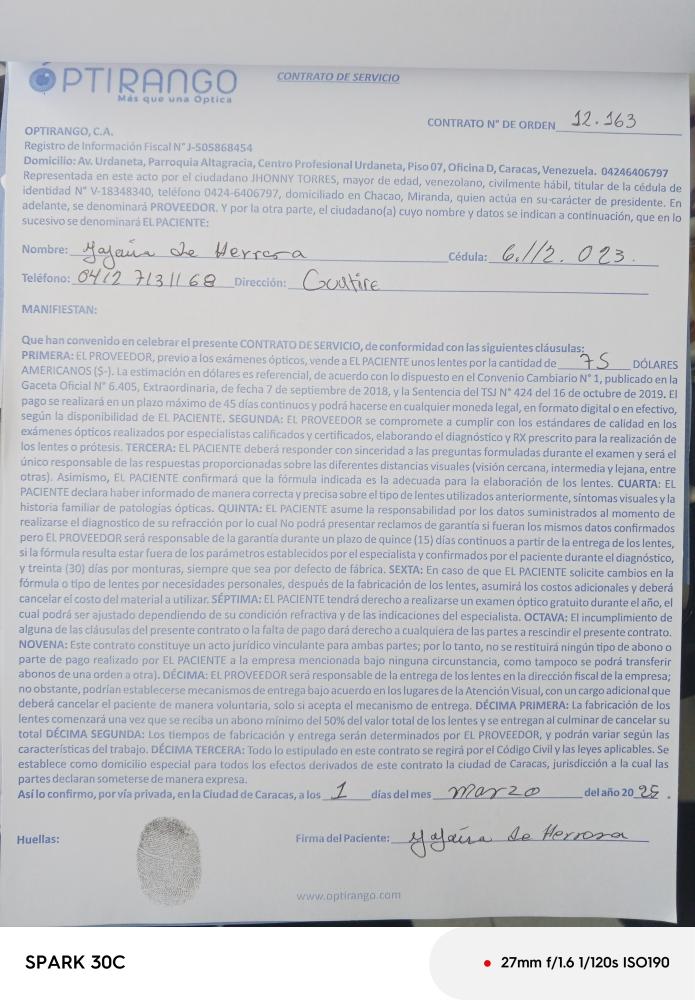 OPTIRANGO
Más que una Óptica
CONTRATO DE SERVICIO
CONTRATO N° DE ORDEN 12.163
OPTIRANGO, C.A.
Registro de Información Fiscal N° J-505868454
Domicilio: Av. Urdaneta, Parroquia Altagracia, Centro Profesional Urdaneta, Piso 07, Oficina D, Caracas, Venezuela. 04246406797
Representada en este acto por el ciudadano JHONNY TORRES, mayor de edad, venezolano, civilmente hábil, titular de la cédula de
identidad N° V-18348340, teléfono 0424-6406797, domiciliado en Chacao, Miranda, quien actúa en su carácter de presidente. En
adelante, se denominará PROVEEDOR. Y por la otra parte, el ciudadano(a) cuyo nombre y datos se indican a continuación, que en lo
sucesivo se denominará EL PACIENTE:
Nombre: Yajaira de Herrera Cédula: 6.112.023.
Teléfono: 0412 7131168 Dirección: Guatire
MANIFIESTAN:
Que han convenido en celebrar el presente CONTRATO DE SERVICIO, de conformidad con las siguientes cláusulas:
PRIMERA: EL PROVEEDOR, previo a los exámenes ópticos, vende a EL PACIENTE unos lentes por la cantidad de 75 DÓLARES
AMERICANOS ($-). La estimación en dólares es referencial, de acuerdo con lo dispuesto en el Convenio Cambiario N° 1, publicado en la
Gaceta Oficial N° 6.405, Extraordinaria, de fecha 7 de septiembre de 2018, y la Sentencia del TSJ N° 424 del 16 de octubre de 2019. El
pago se realizará en un plazo máximo de 45 días continuos y podrá hacerse en cualquier moneda legal, en formato digital o en efectivo,
según la disponibilidad de EL PACIENTE. SEGUNDA: EL PROVEEDOR se compromete a cumplir con los estándares de calidad en los
exámenes ópticos realizados por especialistas calificados y certificados, elaborando el diagnóstico y RX prescrito para la realización de
los lentes o prótesis. TERCERA: EL PACIENTE deberá responder con sinceridad a las preguntas formuladas durante el examen y será el
único responsable de las respuestas proporcionadas sobre las diferentes distancias visuales (visión cercana, intermedia y lejana, entre
otras). Asimismo, EL PACIENTE confirmará que la fórmula indicada es la adecuada para la elaboración de los lentes. CUARTA: EL
PACIENTE declara haber informado de manera correcta y precisa sobre el tipo de lentes utilizados anteriormente, síntomas visuales y la
historia familiar de patologías ópticas. QUINTA: EL PACIENTE asume la responsabilidad por los datos suministrados al momento de
realizarse el diagnostico de su refracción por lo cual No podrá presentar reclamos de garantía si fueran los mismos datos confirmados
pero EL PROVEEDOR será responsable de la garantía durante un plazo de quince (15) días continuos a partir de la entrega de los lentes,
si la fórmula resulta estar fuera de los parámetros establecidos por el especialista y confirmados por el paciente durante el diagnóstico,
y treinta (30) días por monturas, siempre que sea por defecto de fábrica. SEXTA: En caso de que EL PACIENTE solicite cambios en la
fórmula o tipo de lentes por necesidades personales, después de la fabricación de los lentes, asumirá los costos adicionales y deberá
cancelar el costo del material a utilizar. SÉPTIMA: EL PACIENTE tendrá derecho a realizarse un examen óptico gratuito durante el año, el
cual podrá ser ajustado dependiendo de su condición refractiva y de las indicaciones del especialista. OCTAVA: El incumplimiento de
alguna de las cláusulas del presente contrato o la falta de pago dará derecho a cualquiera de las partes a rescindir el presente contrato.
NOVENA: Este contrato constituye un acto jurídico vinculante para ambas partes; por lo tanto, no se restituirá ningún tipo de abono o
parte de pago realizado por EL PACIENTE a la empresa mencionada bajo ninguna circunstancia, como tampoco se podrá transferir
abonos de una orden a otra). DÉCIMA: EL PROVEEDOR será responsable de la entrega de los lentes en la dirección fiscal de la empresa;
no obstante, podrían establecerse mecanismos de entrega bajo acuerdo en los lugares de la Atención Visual, con un cargo adicional que
deberá cancelar el paciente de manera voluntaria, solo si acepta el mecanismo de entrega. DÉCIMA PRIMERA: La fabricación de los
lentes comenzará una vez que se reciba un abono mínimo del 50% del valor total de los lentes y se entregan al culminar de cancelar su
total DÉCIMA SEGUNDA: Los tiempos de fabricación y entrega serán determinados por EL PROVEEDOR, y podrán variar según las
características del trabajo. DÉCIMA TERCERA: Todo lo estipulado en este contrato se regirá por el Código Civil y las leyes aplicables. Se
establece como domicilio especial para todos los efectos derivados de este contrato la ciudad de Caracas, jurisdicción a la cual las
partes declaran someterse de manera expresa.
Así lo confirmo, por vía privada, en la Ciudad de Caracas, a los 1 días del mes marzo del año 2025.
Huellas:
Firma del Paciente: Yajaira de Herrera
www.optirango.com
SPARK 30C
27mm f/1.6 1/120s ISO190